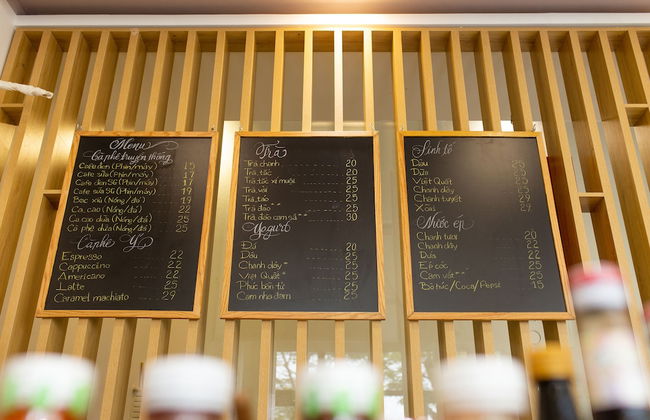 Menu
Cà phê truyền thống
Cafe đen (Phin/máy) 15
Cafe sữa (Phin/máy) 17
Cafe đen SG (Phin/máy) 17
Cafe sữa SG (Phin/máy) 19
Bạc xỉu (Nóng/đá) 19
Ca cao (Nóng/đá) 22
Ca cao dừa (Nóng/đá) 25
Cà phê dừa (Nóng/đá) 25
Cà phê Ý
Espresso 22
Cappuccino 22
Americano 22
Latte 25
Caramel machiato 29
Trà
Trà chanh 20
Trà tắc 20
Trà tắc xí muội 25
Trà vải 25
Trà táo 25
Trà đào 25
Trà đào cam sả 30
Yogurt
Đá 20
Dâu 25
Chanh dây 25
Việt Quất 25
Phúc bồn tử 25
Cam nha đam 25
Sinh tố
Dâu 25
Dừa 25
Việt Quất 25
Chanh dây 25
Chanh tuyết 29
Xoài 29
Nước ép
Chanh tươi 20
Chanh dây 22
Dừa 22
Ép cóc 25
Cam vắt 25
Bò húc/Coca/Pepsi 15